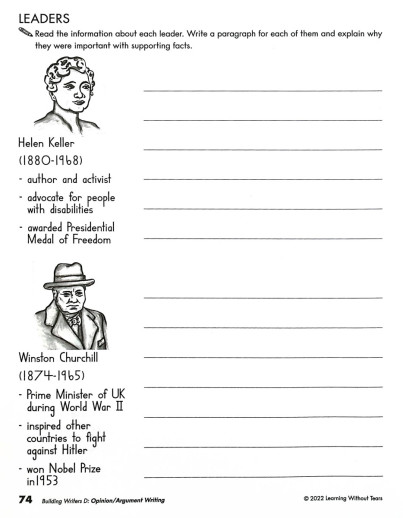 LEADERS
Read the information about each leader. Write a paragraph for each of them and explain why
they were important with supporting facts.
Helen Keller
(1880-1968)
- author and activist
- advocate for people
with disabilities
- awarded Presidential
Medal of Freedom
Winston Churchill
(1874-1965)
- Prime Minister of UK
during World War II
- inspired other
countries to fight
against Hitler
- won Nobel Prize
in1953
74 Building Writers D: Opinion/Argument Writing © 2022 Learning Without Tears